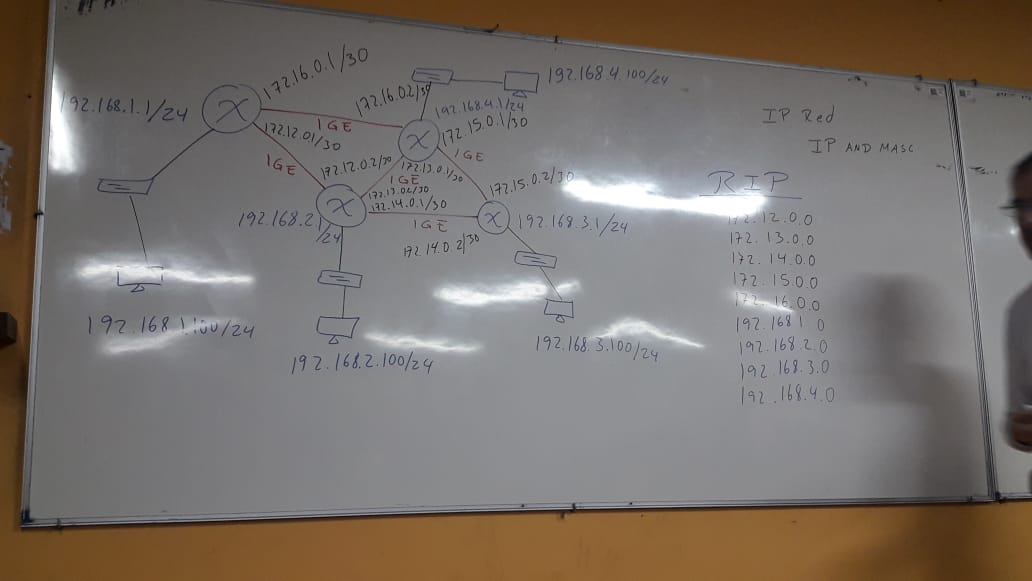 172.16.0.1/30
192.168.1.1/24
1GE
172.16.0.2/30
192.168.4.100/24
192.168.4.1/24
172.15.0.1/30
172.12.0.1/30
1GE
172.12.0.2/30
172.13.0.1/30
1GE
1GE
172.13.0.2/30
172.14.0.1/30
172.15.0.2/30
192.168.2.1
/24
1GE
172.14.0.2/30
192.168.3.1/24
192.168.1.100/24
192.168.2.100/24
192.168.3.100/24
IP Red
IP AND MASC
RIP
172.12.0.0
172.13.0.0
172.14.0.0
172.15.0.0
172.16.0.0
192.168.1.0
192.168.2.0
192.168.3.0
192.168.4.0